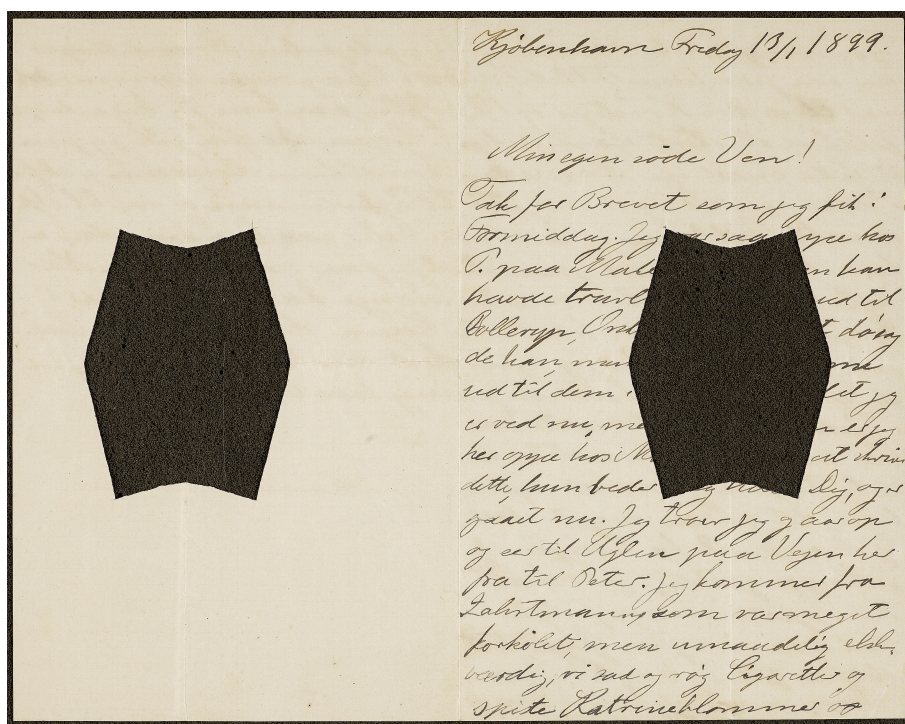 Kjøbenhavn Fredag 13/1 1899.
Min egen søde Ven!
Tak for Brevet som jeg fik i
Formiddag. Jeg var saa oppe hos
P. paa Male han
havde travl ud til
Bolleryp,
de han,
ud til dem det jeg
er ved nu, me er jeg
her oppe hos M at skrive
dette, hun beder Dig, og er
gaaet nu. Jeg tror jeg gaar op
og ser til Uglen paa Vejen her
fra til Peter. Jeg kommer fra
Zahrtmann, som var meget
forkølet, men umaadelig elsk-
værdig, vi sad og røg Cigaretter og
spiste Katrineblommer og